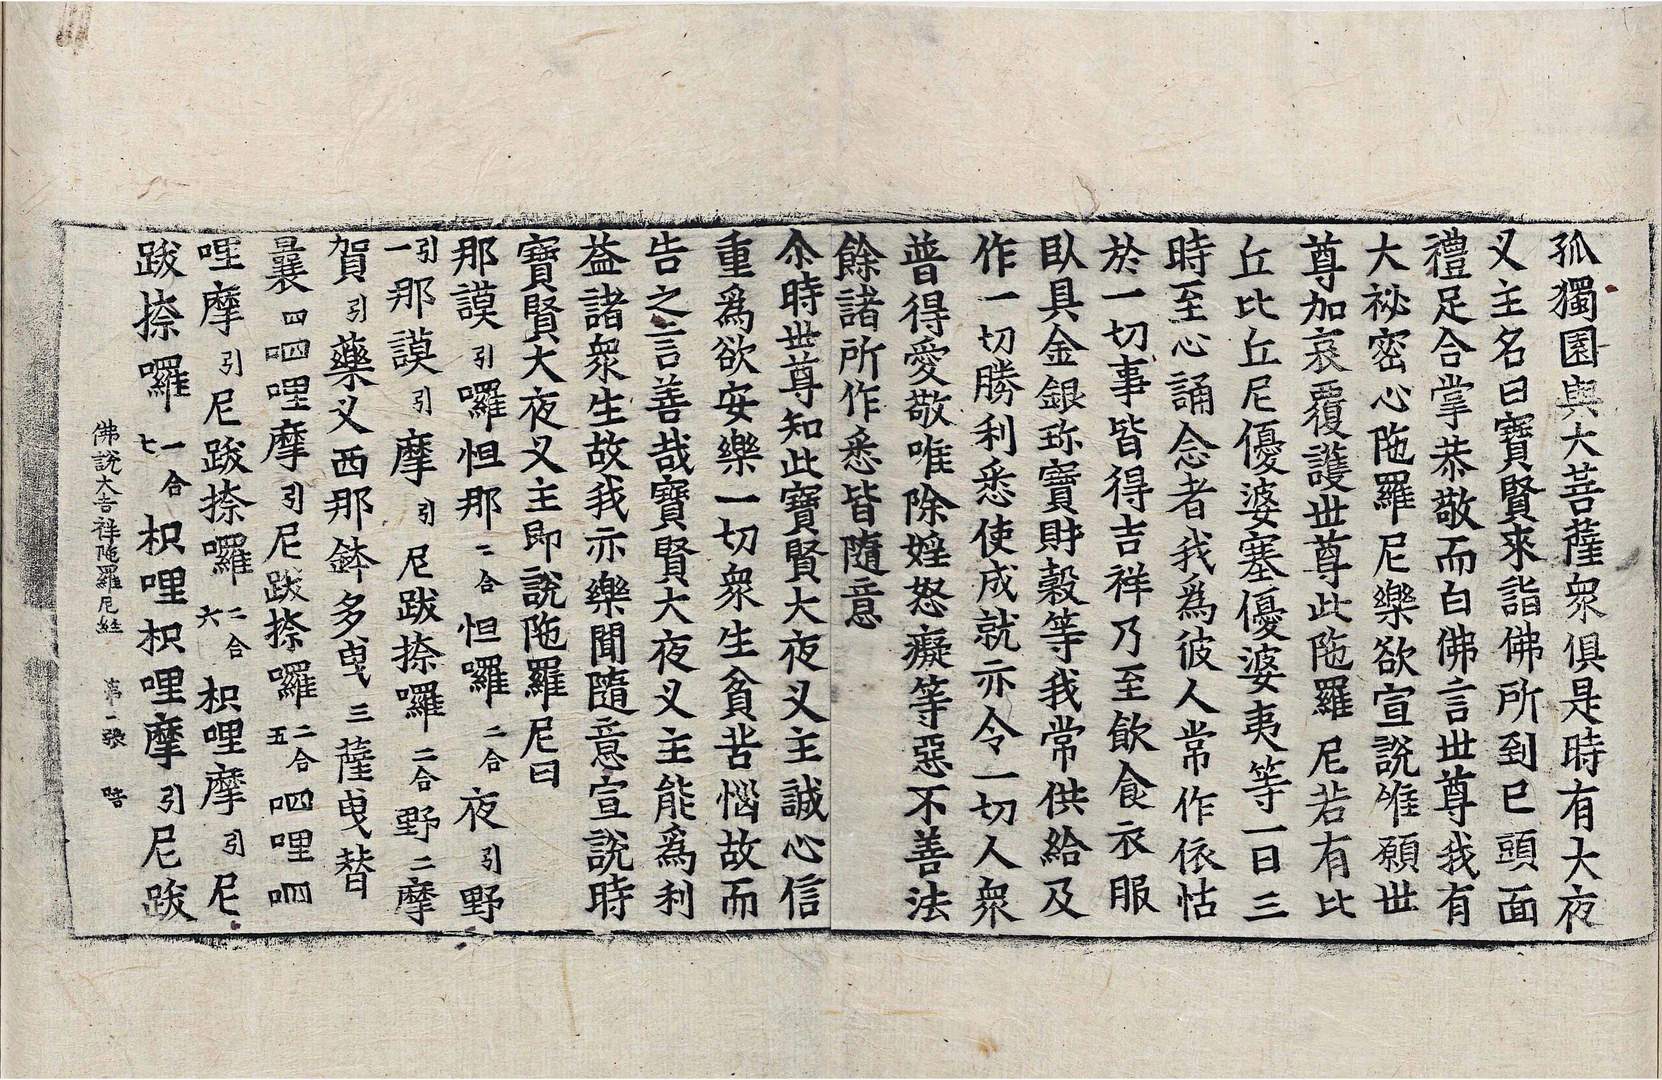 孤獨園與大菩薩衆俱是時有大夜
叉主名曰寶賢來詣佛所到已頭面
禮足合掌恭敬而白佛言世尊我有
大祕密心陁羅尼樂欲宣說唯願世
尊加哀覆護世尊此陁羅尼若有比
丘比丘尼優婆塞優婆夷等一日三
時至心誦念者我爲彼人常作依怙
於一切事皆得吉祥乃至飲食衣服
臥具金銀珎寶財穀等我常供給及
作一切勝利悉使成就亦令一切人衆
普得愛敬唯除婬怒癡等惡不善法
餘諸所作悉皆隨意
尒時世尊知此寶賢大夜叉主誠心信
重爲欲安樂一切衆生貧苦惱故而
告之言善哉寶賢大夜叉主能爲利
益諸衆生故我亦樂聞隨意宣說時
寶賢大夜叉主即說陁羅尼曰
那謨引囉怛那二合怛囉二合夜引野
引一那謨引摩引尼跋捺囉二合野二摩
賀引藥叉西那鉢多曳三薩曳替
曩四呬哩摩引尼跋捺囉二合五呬哩呬
哩摩引尼跋捺囉二合六枳哩摩引尼
跋捺囉二合七枳哩枳哩摩引尼跋
佛說大吉祥陁羅尼経 第二張